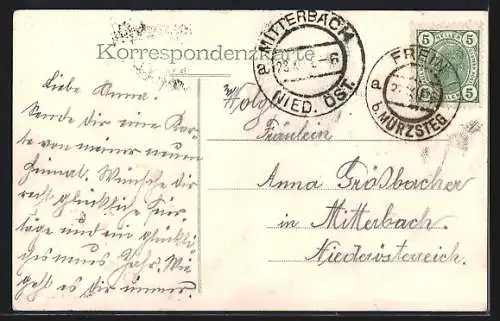 Korrespondenzkarte
MITTERBACH
a
6
NIED. ÖST.
FREIN
a
b. MÜRZSTEG
5 HELLER 5
5 5
Liebe Anna!
Sende dir eine Kar-
te von meiner neuen
Heimat. Wünsche dir
recht glückliche Feier-
tage und ein glückli-
ches neues Jahr. Wie
geht es dir immer.
Wolgb.
Fräulein
Anna Größbacher
in Mitterbach
Niederösterreich.